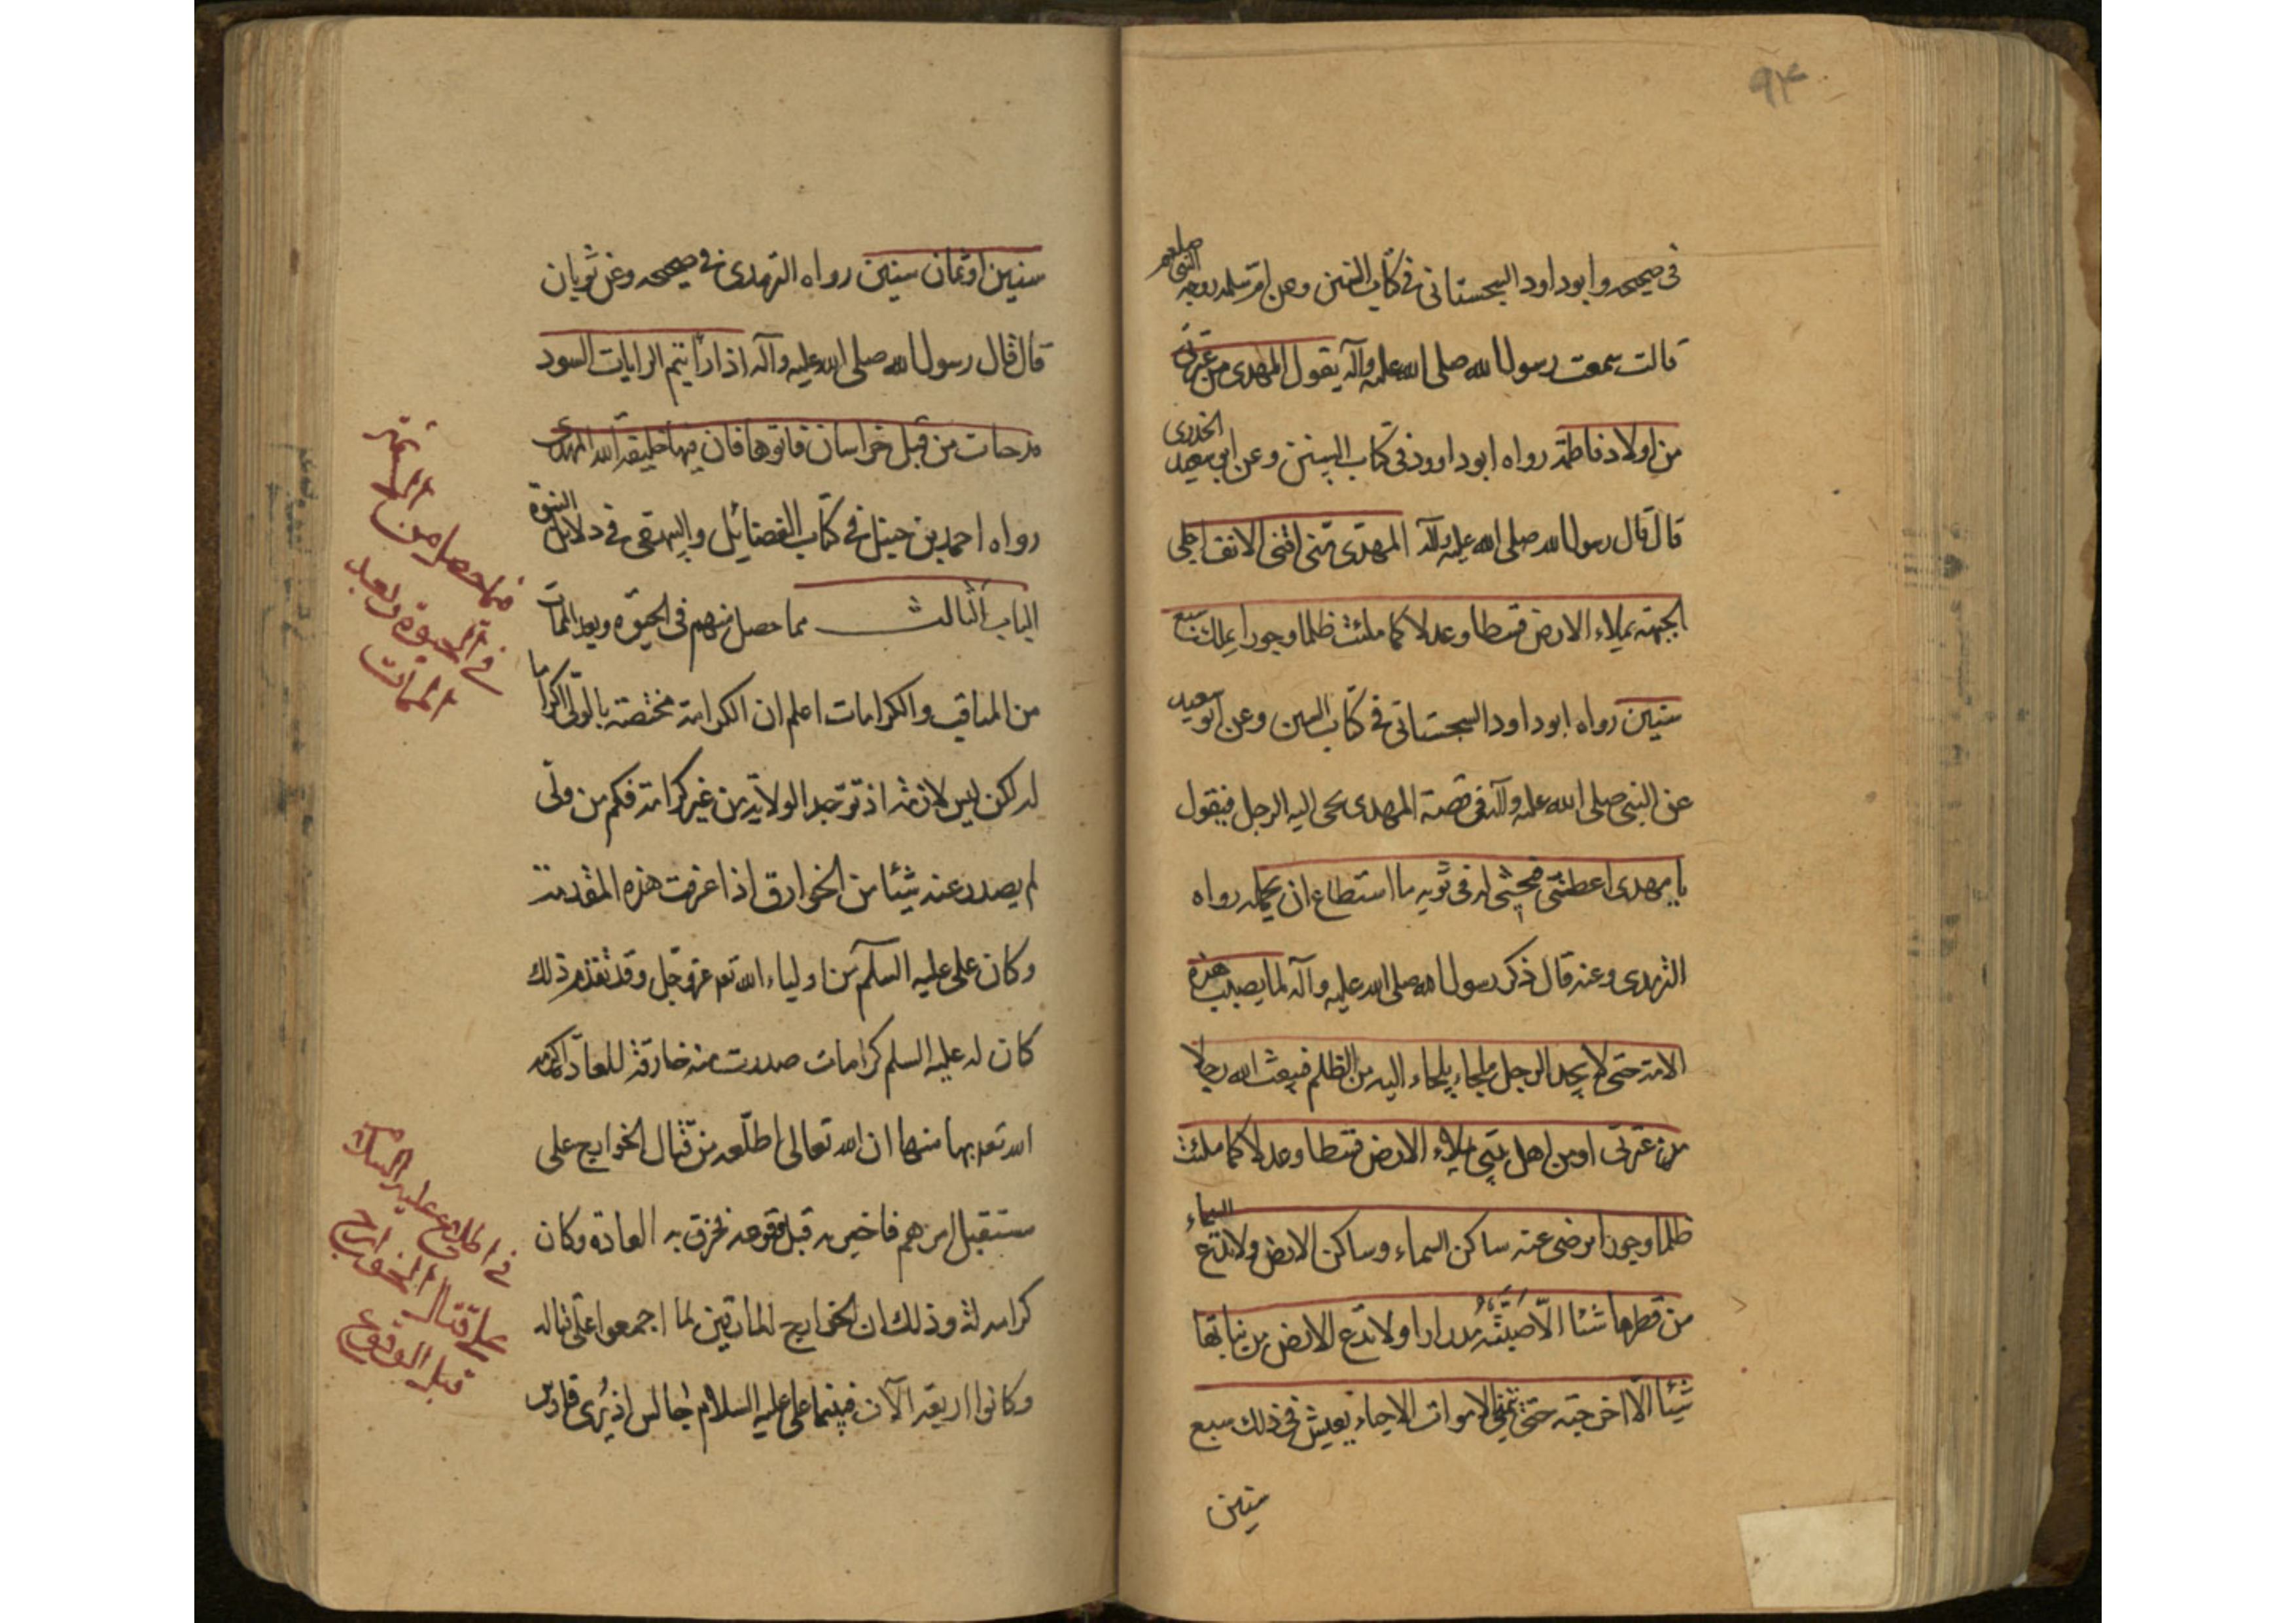 ٩٣
في صحيحه وابو داود السجستاني في كتاب السنن وعن ام سلمه زوجه النبي صلعم
قالت سمعت رسول الله صلى الله عليه وآله يقول المهدى من عترتى
من اولاد فاطمة رواه ابو داوود في كتاب السنن وعن ابي سعيد الخدرى
قال قال رسول الله صلى الله عليه وآله المهدى منى اقنى الانف اجلى
الجبهة يملاء الارض قسطا وعدلا كما ملئت ظلما وجورا يملك سبع
سنين رواه ابو داود السجستاني في كتاب السنن وعن ابو سعيد
عن النبى صلى الله عليه وآله في قصة المهدى يجى اليه الرجل فيقول
يا مهدى اعطنى فيحثى له في ثوبه ما استطاع ان يحمله رواه
الترمدى وعنه قال ذكر رسول الله صلى الله عليه وآله لما يصيب هذه
الامة حتى لا يجد الرجل ملجاء يلجاء اليه من الظلم فيبعث الله رجلا
من عترتى او من اهل بيتي يملاء الارض قسطا وعدلا كما ملئت
ظلما وجورا يرضى عنه ساكن السماء وساكن الارض ولا تدع السماء
من قطرها شئا الّا صبته مدرارا ولا تدع الارض من نباتها
شيئا الّا اخرجته حتى تمنى الاموات الاحياء يعيش في ذلك سبع
سنين
سنين او ثمان سنين رواه الترمدى في صحيحه وعن ثوبان
قال قال رسول الله صلى الله عليه وآله اذا رأيتم الرايات السود
قد جات من قبل خراسان فاتوها فان فيها خليفة الله المهدى
رواه احمد بن حنبل في كتاب الفضائل والبيهقى في دلائل النبوة
الباب الثالث مما حصل منهم في الحيوة وبعد الممات
من المناقب والكرامات اعلم ان الكرامة مختصة بالولى
له لكن ليس لازمة اذ توجد الولاية من غير كرامة فكم من ولى
لم يصدر عنه شيئا من الخوارق اذا عرفت هذه المقدمة
وكان على عليه السلم من اولياء الله تعه عز وجل وقد تقدم ذلك
كان له عليه السلم كرامات صدرت منه خارقة للعادة اكرمه
الله تعه بها منها ان الله تعالى اطلعه من قتال الخوارج على
مستقبل امرهم فاخبر به قبل وقوعه فخرق به العادة وكان
كرامه له وذلك ان الخوارج المارقين لما اجمعوا على قتاله
وكانوا اربعة الآن فبينما على عليه السلام جالس اذ
فيما حصل من الائمة
في الحيوة وبعد
الممات
في اطلاع عليه السلم
على قتال الخوارج
قبل الوقوع